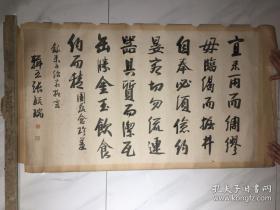 宜未雨而綢繆
毋臨渴而掘井
自奉必須儉約
宴客切勿流連
器具質而潔瓦
缶勝金玉飲食
約而精園蔬愈珍羞
錄朱子治家格言
輯五張瑞